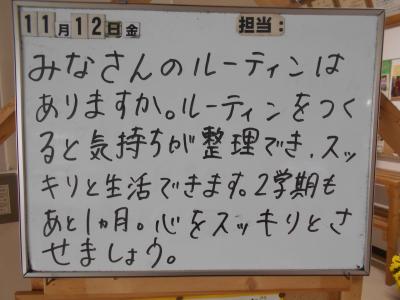 11月12日金 担当:
みなさんのルーティンは
ありますか。ルーティンをつく
ると気持ちが整理でき、スッ
キリと生活できます。2学期も
あと1ヵ月。心をスッキリとさ
せましょう。